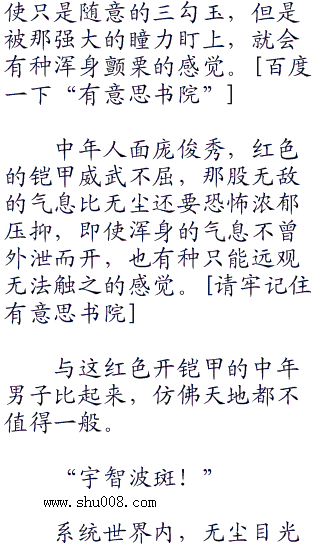 使只是随意的三勾玉，但是
被那强大的瞳力盯上，就会
有种浑身颤栗的感觉。[百度
一下“有意思书院”]
中年人面庞俊秀，红色
的铠甲威武不屈，那股无敌
的气息比无尘还要恐怖浓郁
压抑，即使浑身的气息不曾
外泄而开，也有种只能远观
无法触之的感觉。[请牢记住
有意思书院]
与这红色开铠甲的中年
男子比起来，仿佛天地都不
值得一般。
“宇智波斑！”
www.shu008.com
系统世界内，无尘目光